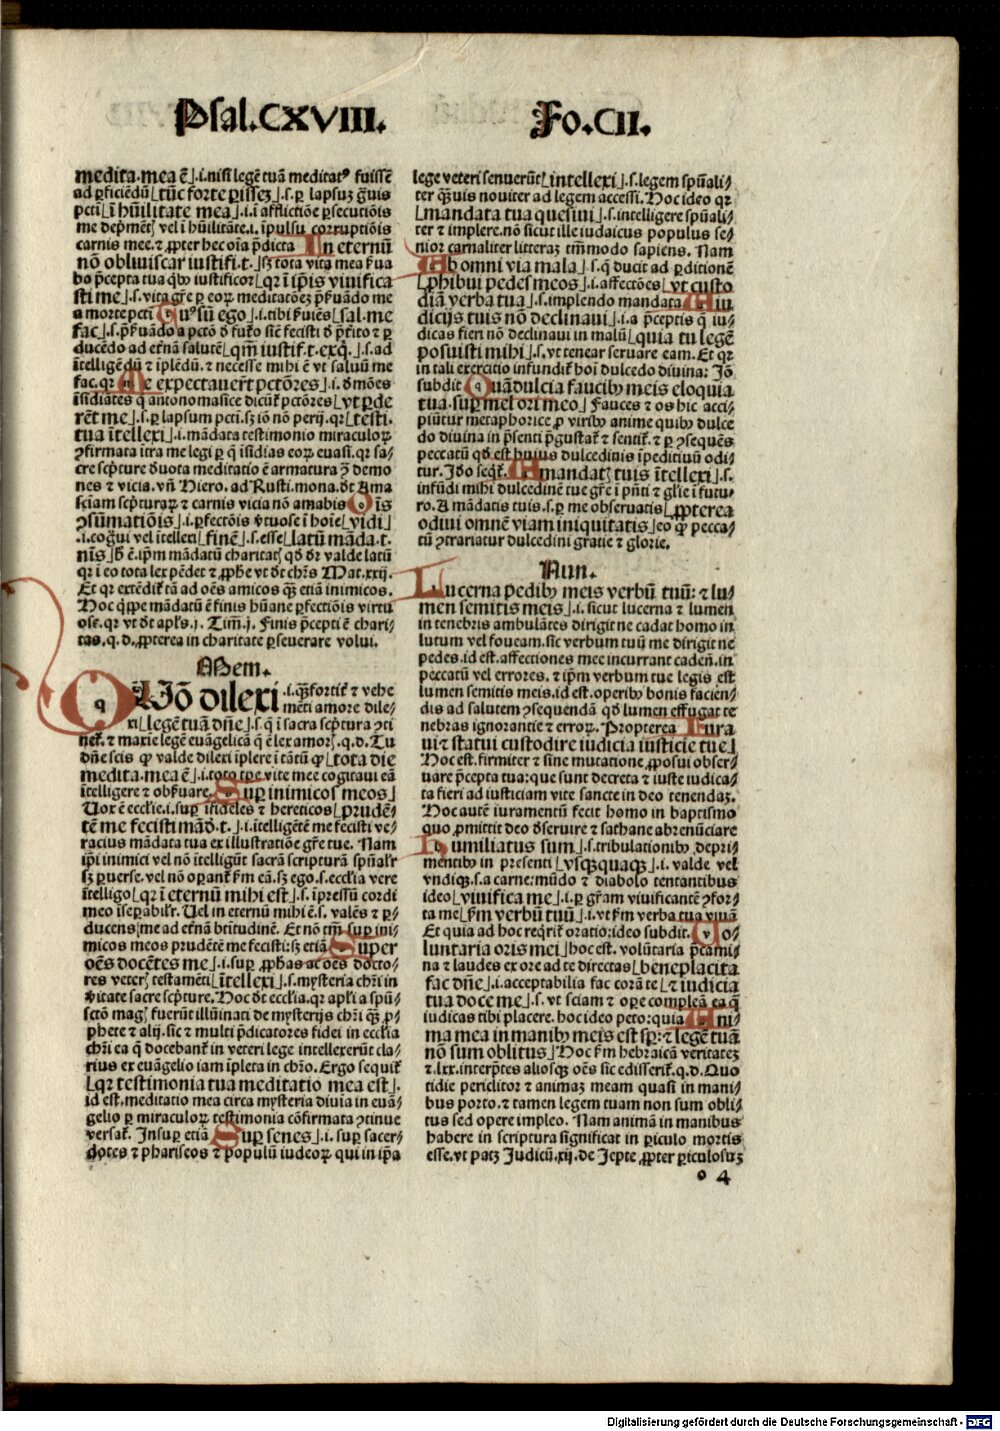 Psal.CXVIII.
Fo.CII.
medita.mea ē⌋.i.nisi legē tuā meditatꝰ fuissē
ad ꝑficiēdū⌊tūc forte ꝑissez⌋.s.ꝑ lapsuz gͣuis
pcti⌊ī hūilitate mea⌋.i.ī afflictiōe ꝑsecutiōis
me dep̄mēt⌋ vel ī hūilitāte.i.īpulsu corruptiōis
carnis mee.⁊ ꝓpter hec oīa p̄dicta In eternū
nō obliuiscar iustifi.t.⌋sꝫ tota vita mea ẜua
bo p̄cepta tua qbꝫ iustificor⌊qr ī ip̄is viuifica
sti me⌋.s.vita gr̄e ꝑ eoꝝ meditatōeꝫ p̄ẜuādo me
a morte pcti Tuꝰ sū ego⌋.i.tibi ẜuiēs⌊sal.me
fac⌋.s.p̄ẜuādo a pctō ⁊ fut̄o sic̄ fecisti ⁊ p̄t̄ito ⁊ ꝑ
ducēdo ad et̄nā salutē⌊qm̄ iustif.t.exq̄⌋.s.ad
ītelligēdū ⁊ īplēdū.⁊ necesse mihi ē vt saluū me
fac.qr Me expectauer̄t pctōres⌋.i.dmōes
īsidiates q̄ antonomasice dicūt̄ pctōres⌊vt ꝑde
rēt me⌋.s.ꝑ lapsum pcti.sꝫ iō nō perij.qr⌊testi.
tua ītellexi⌋.i.mādata testimonio miraculoꝝ
ꝯfirmata ītra me legi ꝑ q̄ īsidias eoꝝ euasi.qr sa⸗
cre scp̄ture deuota meditatio ē armatura ꝯ demo
nes ⁊ vicia.vn̄ Hiero.ad Rusti.mona.dt Ama
sciam scp̄turaꝝ ⁊ carnis vicia nō amabis Oīs
ꝯsūmatiōis⌋.i.ꝑfectōis vtuose ī hoīe⌊vidi⌋
.i.cogui vel ītellexi⌊finē⌋.s.esse⌊latū māda.t.
nīs⌋h̄ ē.ip̄m mādatū charitat⌋ qd dr valde latū
qr ī eo tota lex pēdet ⁊ ꝓph̄e vt dt chr̄s Mat.xxij.
Et qr extēdit̄ tā ad oēs amicos qꝫ etiā inimicos.
Hoc qͥppe mādatū ē finis hūane ꝑfectiōis virtu
ose.qr vt dt apl̄s.j.Tim̄.j.Finis p̄cepti ē chari⸗
tas.q.d.ꝓpterea in charitate ꝑseuerare volui.
Mem.
QUō dilexi .i.qꝫfortit̄ ⁊ vehe
mēti amore dile⸗
xi⌊legē tuā dn̄e⌋.s.q̄ ī sacra scp̄tura ꝯti
net̄.⁊ maxie legē euāgelicā q̄ ē lex amor⌋.q.d.Tu
dn̄e scis ꝙ valde dilexi īplere ī tātū ꝙ⌊tota die
medita.mea ē⌋.i.toto tꝑe vite mee cogitaui eā
ītelligere ⁊ obẜuare. Suꝑ inimicos meos⌋
Uot ē eccl̄ie.i.suꝑ īfideles ⁊ hereticos⌊prudē⸗
tē me fecisti mād.t.⌋.i.ītelligētē me fecisti ve⸗
racius mādata tua ex illustratiōe gr̄e tue. Nam
ip̄i inimici vel nō ītelligūt sacrā scripturā spūal̄r
sꝫ ꝑuerse.vel nō opant̄ ẜm eā.sꝫ ego.s.eccl̄ia vere
ītelligo⌊qr ī eternū mihi est⌋.s.īpressū cordi
meo īsepabil̄r.Uel in eternū mihi ē.s.valēs ⁊ ꝑ⸗
ducens⌋me ad et̄nā btitudinē. Et nō tm̄ suꝑ ini⸗
micos meos prudētē me fecisti:sꝫ etiā Super
oēs docētes me⌋.i.suꝑ ꝓph̄as ac oēs docto⸗
res veter⌋ testamēti⌊ītellexi⌋.s.mysteria chr̄i in
v̄itate sacre scp̄ture.Hoc dt eccl̄ia.qr apl̄i a spū⸗
sctō mag⌋ fuerūt illūinati de mysterijs chr̄i qꝫ ꝓ⸗
phete ⁊ alij.sic ⁊ multi p̄dicatores fidei in eccl̄ia
chr̄i ea q̄ docebant̄ in veteri lege intellexerūt cla⸗
rius ex euāgelio iam īpleta in chr̄o.Ergo sequit̄
⌊qr testimonia tua meditatio mea est⌋.
id est.meditatio mea circa mysteria diuia in euā⸗
gelio ꝑ miraculoꝝ testimonia cōfirmata ꝯtinue
versat̄. Insuꝑ etiā Suꝑ senes⌋.i.suꝑ sacer⸗
dotes ⁊ phariseos ⁊ populū iudeoꝝ qui in ip̄a
lege veteri senuerūt⌊intellexi⌋.s.legem spūali⸗
ter qꝫuis nouiter ad legem accessi.Hoc ideo qr
⌊mandata tua quesiui⌋.s.intelligere spūali⸗
ter ⁊ implere.nō sicut ille iudaicus populus se⸗
nior carnaliter litteraꝫ tm̄modo sapiens. Nam
Ab omni via mala⌋.s.q̄ ducit ad ꝑditionē
⌊ꝓhibui pedes meos⌋.i.affectōes⌊vt custo
diā verba tua⌋.s.implendo mandata A iu⸗
dicijs tuis nō declinaui⌋.i.a p̄ceptis q̄ iu⸗
dicas fieri nō declinaui in malū⌊quia tu legē
posuisti mihi⌋.s.vt tenear seruare eam.Et qr
in tali exercitio infundit̄ hoī dulcedo diuina: Jō
subdit Quā dulcia faucibꝫ meis eloquia
tua.suꝑ mel ori meo⌋Fauces ⁊ os hic acci⸗
piūtur metaphorice ꝓ viribꝫ anime quibꝫ dulce
do diuina in p̄senti p̄gustat̄ ⁊ sentit̄.⁊ ꝑ ꝯsequēs
peccatū qd est huius dulcedinis īpeditiuū odi⸗
tur.Jdo seqt̄. A mandat⌋ tuis ītellexi⌋.s.
infūdi mihi dulcedinē tue gr̄e ī pn̄ti ⁊ gl̄ie ī futu⸗
ro.A mādatis tuis.s.ꝑ me obseruatis⌊ꝓpterea
odiui omnē viam iniquitatis⌋eo ꝙ pecca⸗
tū ꝯtrariatur dulcedini gratie ⁊ glorie.
Nun.
Lucerna pedibꝫ meis verbū tuū: ⁊ lu⸗
men semitis meis⌋.i.sicut lucerna ⁊ lumen
in tenebris ambulātes dirigit ne cadat homo in
lutum vel foueam.sic verbum tuū me dirigit ne
pedes.id est.affectiones mee incurrant caden̄.in
peccatū vel errores.⁊ ip̄m verbum tue legis est
lumen semitis meis.id est.operibꝫ bonis facien⸗
dis ad salutem ꝯsequendā qd lumen effugat te
nebras ignorantie ⁊ erroꝝ.Propterea Iura
ui⁊ statui custodire iudicia iusticie tue⌋
Hoc est.firmiter ⁊ sine mutatione ꝓposui obser⸗
uare p̄cepta tua:que sunt decreta ⁊ iuste iudica⸗
ta fieri ad iusticiam vite sancte in deo tenendaꝫ.
Hoc autē iuramentū fecit homo in baptismo
quo ꝓmittit deo deseruire ⁊ sathane abrenūciare
Humiliatus sum⌋.s.tribulationibꝫ depri⸗
mentibꝫ in presenti⌊vsqꝫquaqꝫ⌋.i.valde vel
vndiqꝫ.s.a carne:mūdo ⁊ diabolo tentantibus
ideo⌊viuifica me⌋.i.ꝑ gr̄am viuificantē ꝯfor⸗
ta me⌊ẜm verbū tuū⌋.i.vt ẜm verba tua viuā
Et quia ad hoc reqrit̄ oratio:ideo subdit. Uo⸗
luntaria oris mei⌋hoc est.volūtaria p̄cami⸗
na ⁊ laudes ex ore ad te directas⌊beneplacita
fac dn̄e⌋.i.acceptabilia fac corā te⌊⁊ iudicia
tua doce me⌋.s.vt sciam ⁊ ope compleā ea q̄
iudicas tibi placere.hoc ideo peto:quia Ani⸗
ma mea in manibꝫ meis est sp̄:⁊ legē tuā
nō sum oblitus⌋Hoc ẜm hebraicā veritateꝫ
⁊.lxx.interp̄tes aliosqꝫ oēs sic edisserit̄.q.d.Quo
tidie periclitor ⁊ animaꝫ meam quasi in mani⸗
bus porto.⁊ tamen legem tuam non sum obli⸗
tus sed opere impleo. Nam animā in manibus
habere in scriptura significat in ꝑiculo mortis
esse.vt patꝫ Judicū.xij.de Jepte ꝓpter ꝑiculosuꝫ
o 4
Digitalisierung gefördert durch die Deutsche Forschungsgemeinschaft - DFG